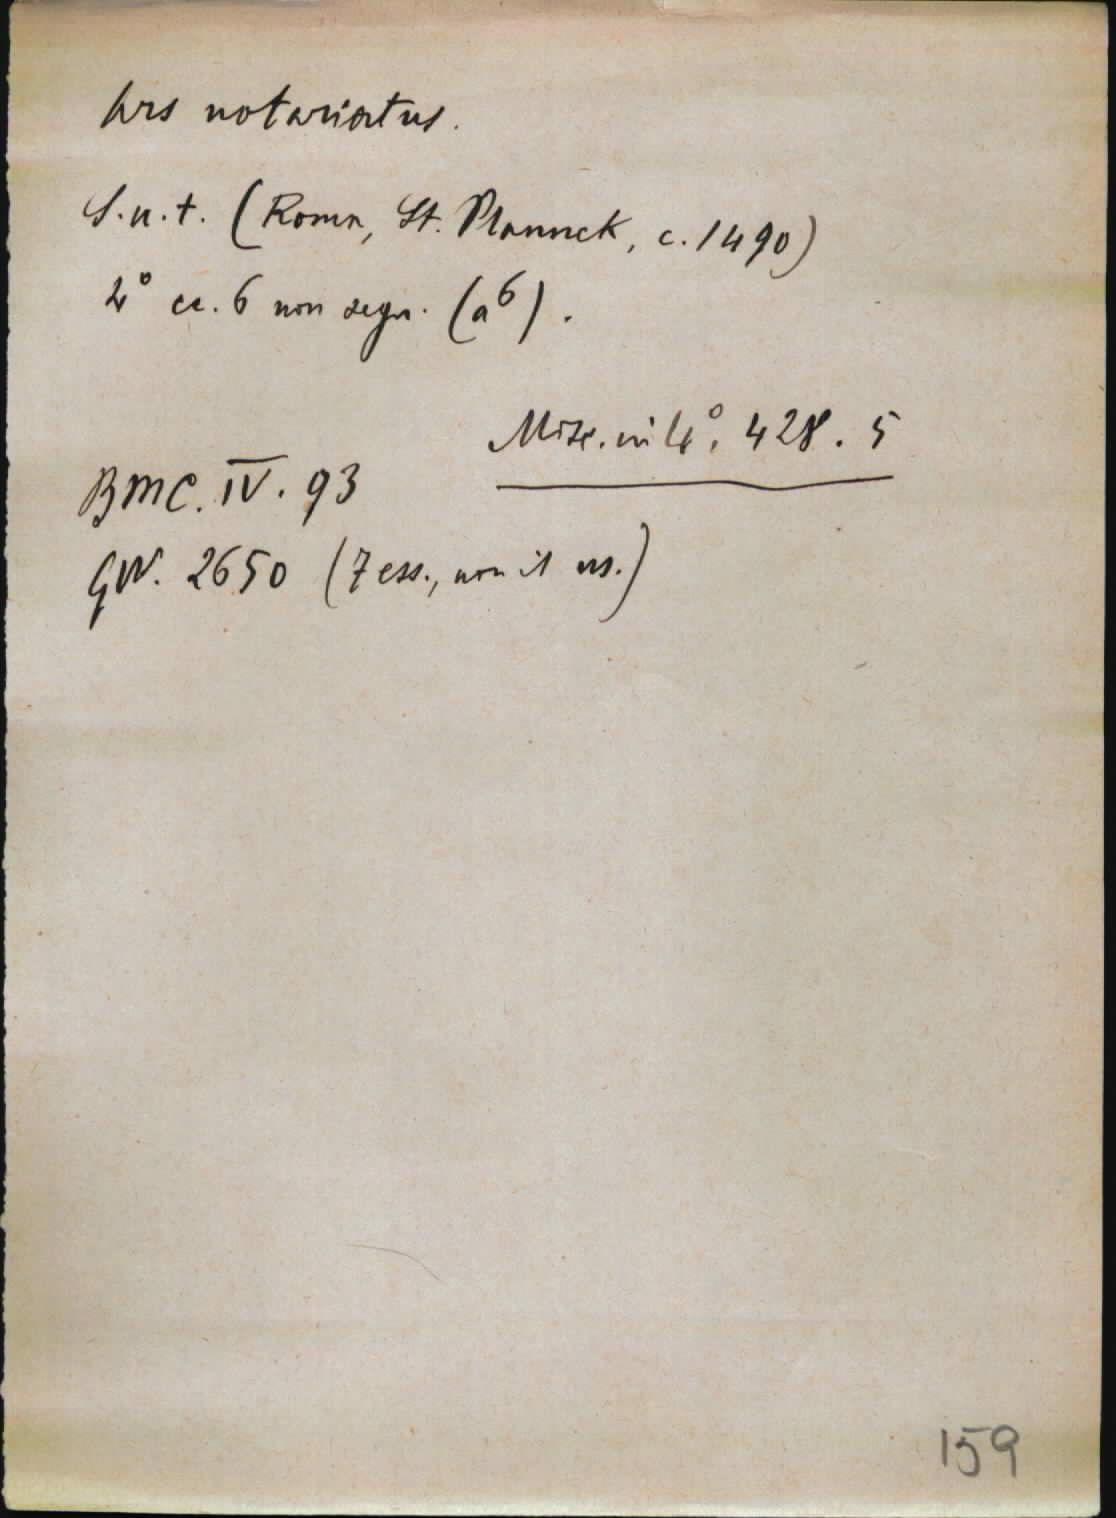 Ars notariatus.
S.n.t. (Roma, St. Plannck, c. 1490)
4° cc. 6 non segn. (a⁶).
Misc. in 4°. 428. 5
BMC. IV. 93
GW. 2650 (7 ess., non il ns.)
159